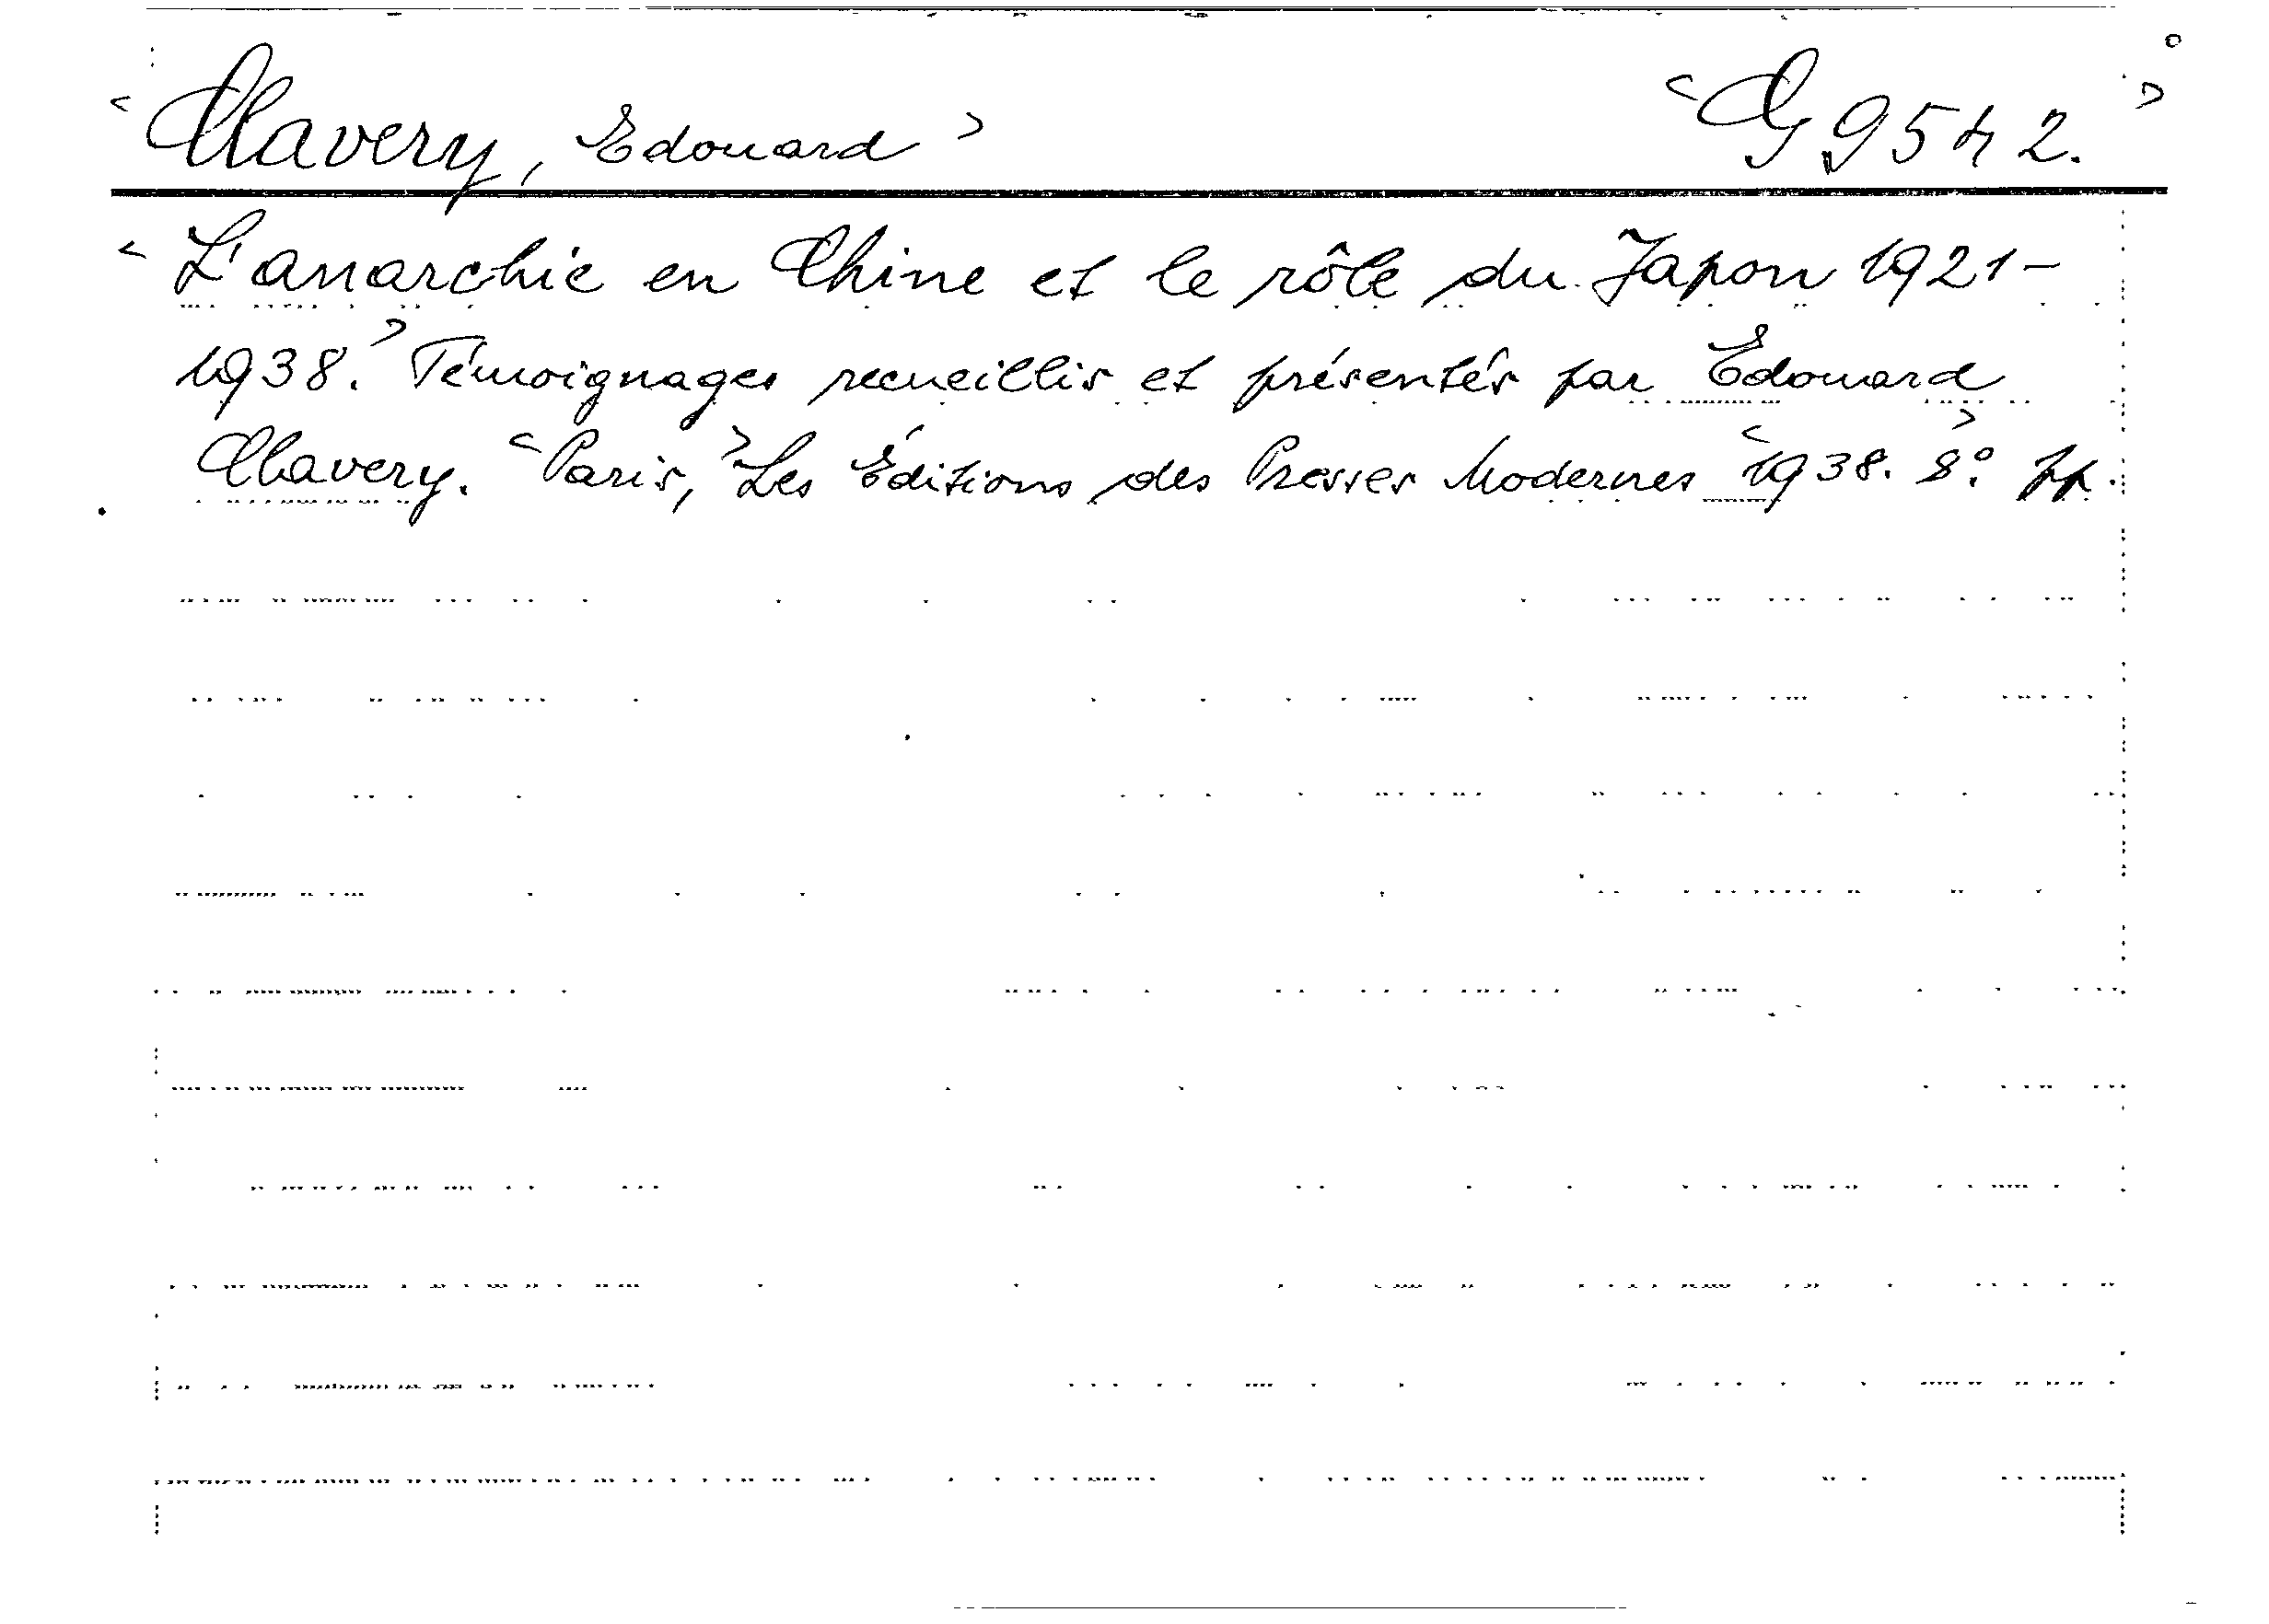 < Clavery, Edouard > < G 9542. >
< L'anarchie en Chine et le rôle du Japon 1921-
1938. > Témoignages recueillis et présentés par Edouard
Clavery. < Paris, > Les Éditions des Presses Modernes < 1938. 8°. > pp.